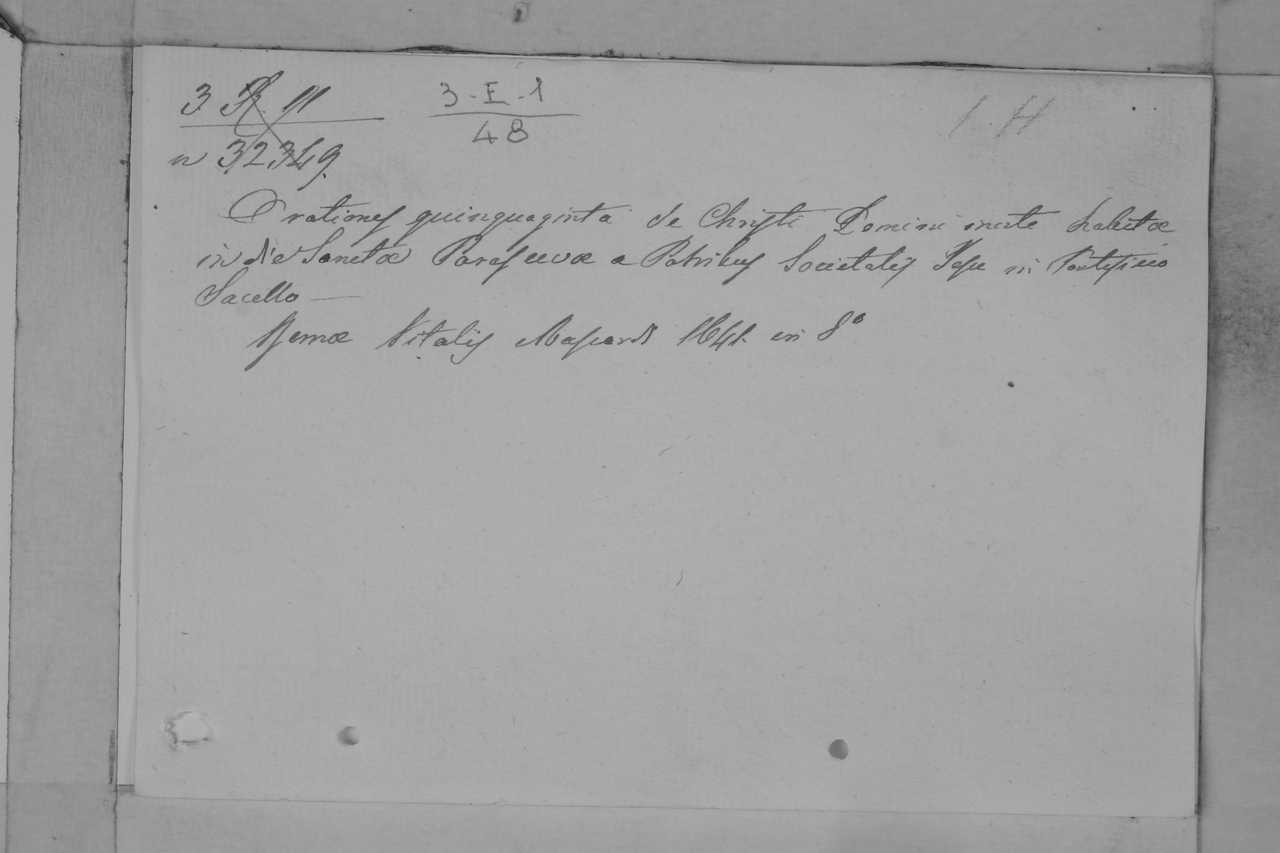 3 R 11
n 32349
3-E-1
48
1. H
Orationes quinquaginta de Christi Domini morte habitae
in die Sanctae Parascevae a Patribus Societatis Jesu in Pontificio
Sacello —
Romae Vitalis Mascardi 1641. in 8º